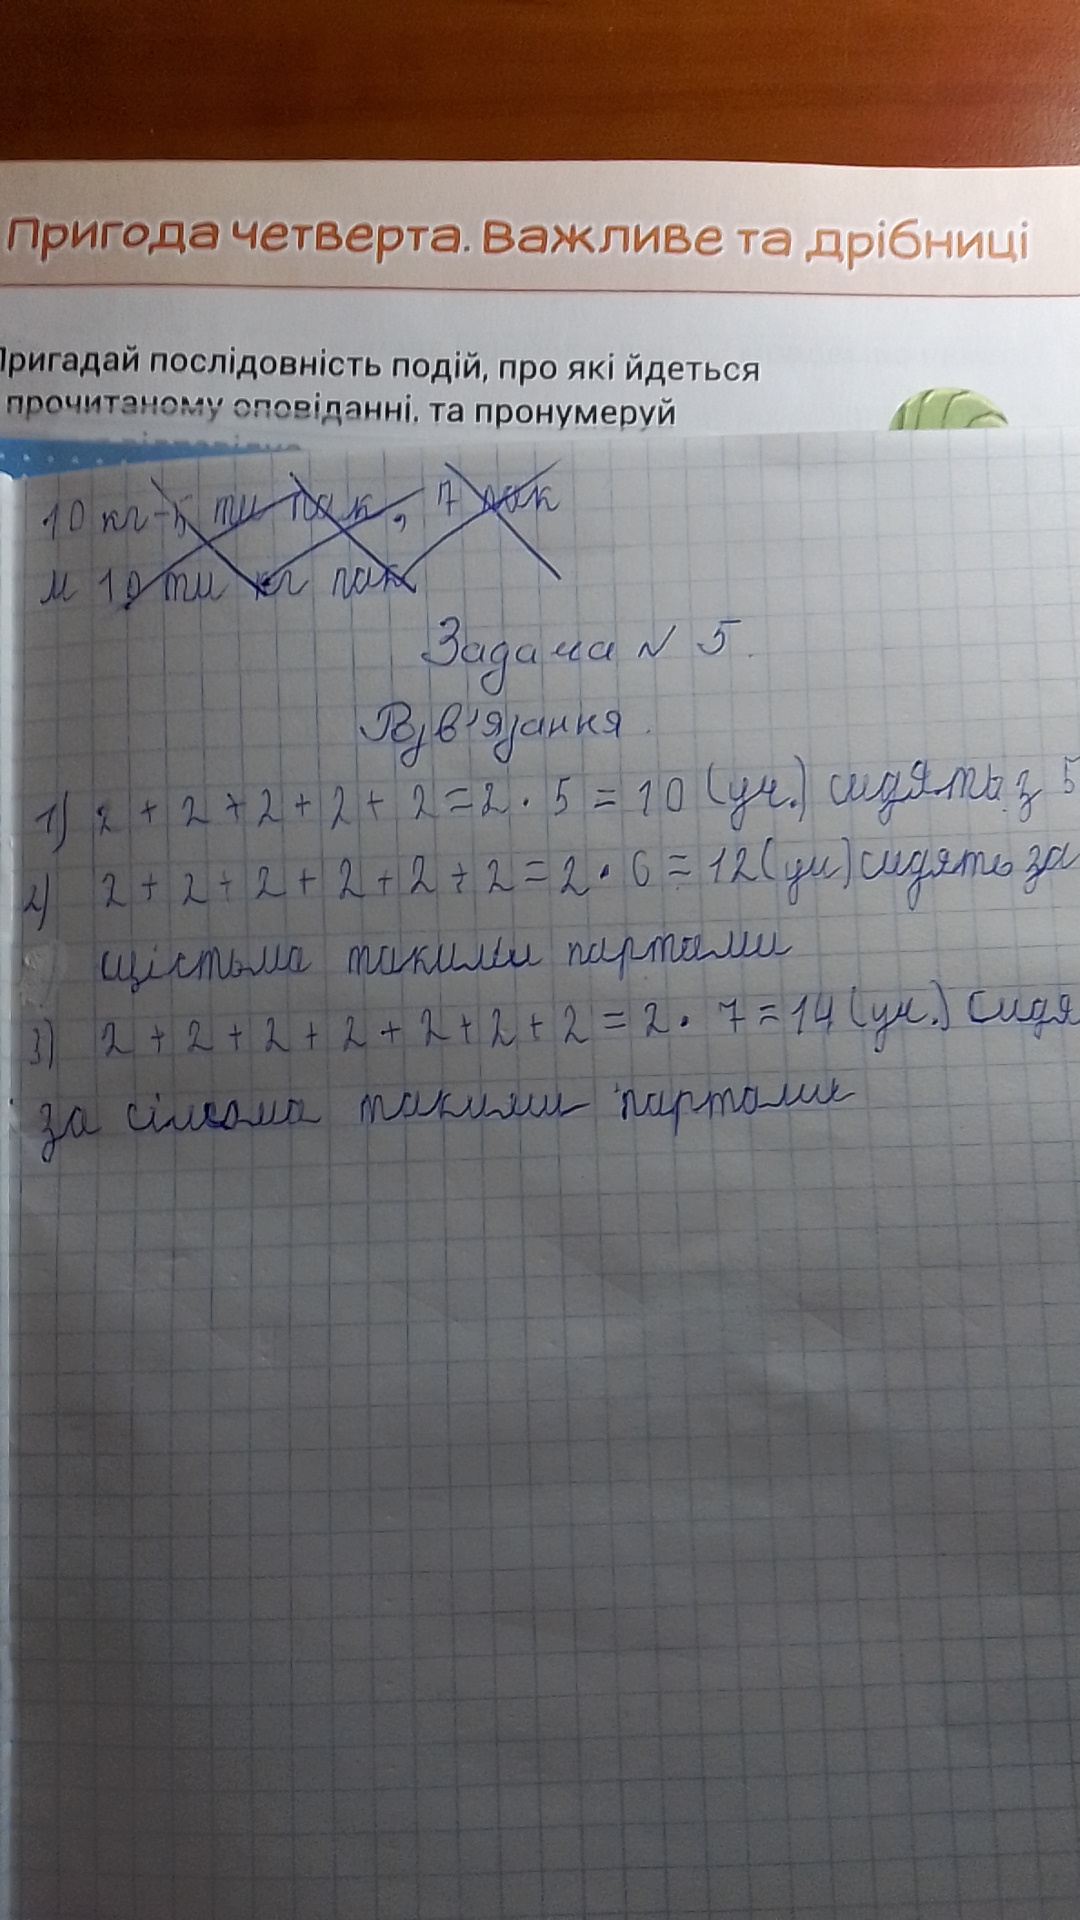 Пригода четверта. Важливе та дрібниці
Пригадай послідовність подій, про які йдеться
прочитаному оповіданні, та пронумеруй
10 кг - 5 ти пак, 7 пак
М 10 ти кг пак
Задача № 5.
Розв'язання.
1) 2 + 2 + 2 + 2 + 2 = 2 · 5 = 10 (уч.) сидять з 5
2) 2 + 2 + 2 + 2 + 2 + 2 = 2 · 6 = 12 (уч) сидять за
шістьма такими партами
3) 2 + 2 + 2 + 2 + 2 + 2 + 2 = 2 · 7 = 14 (уч.) сидя
за сімома такими партами